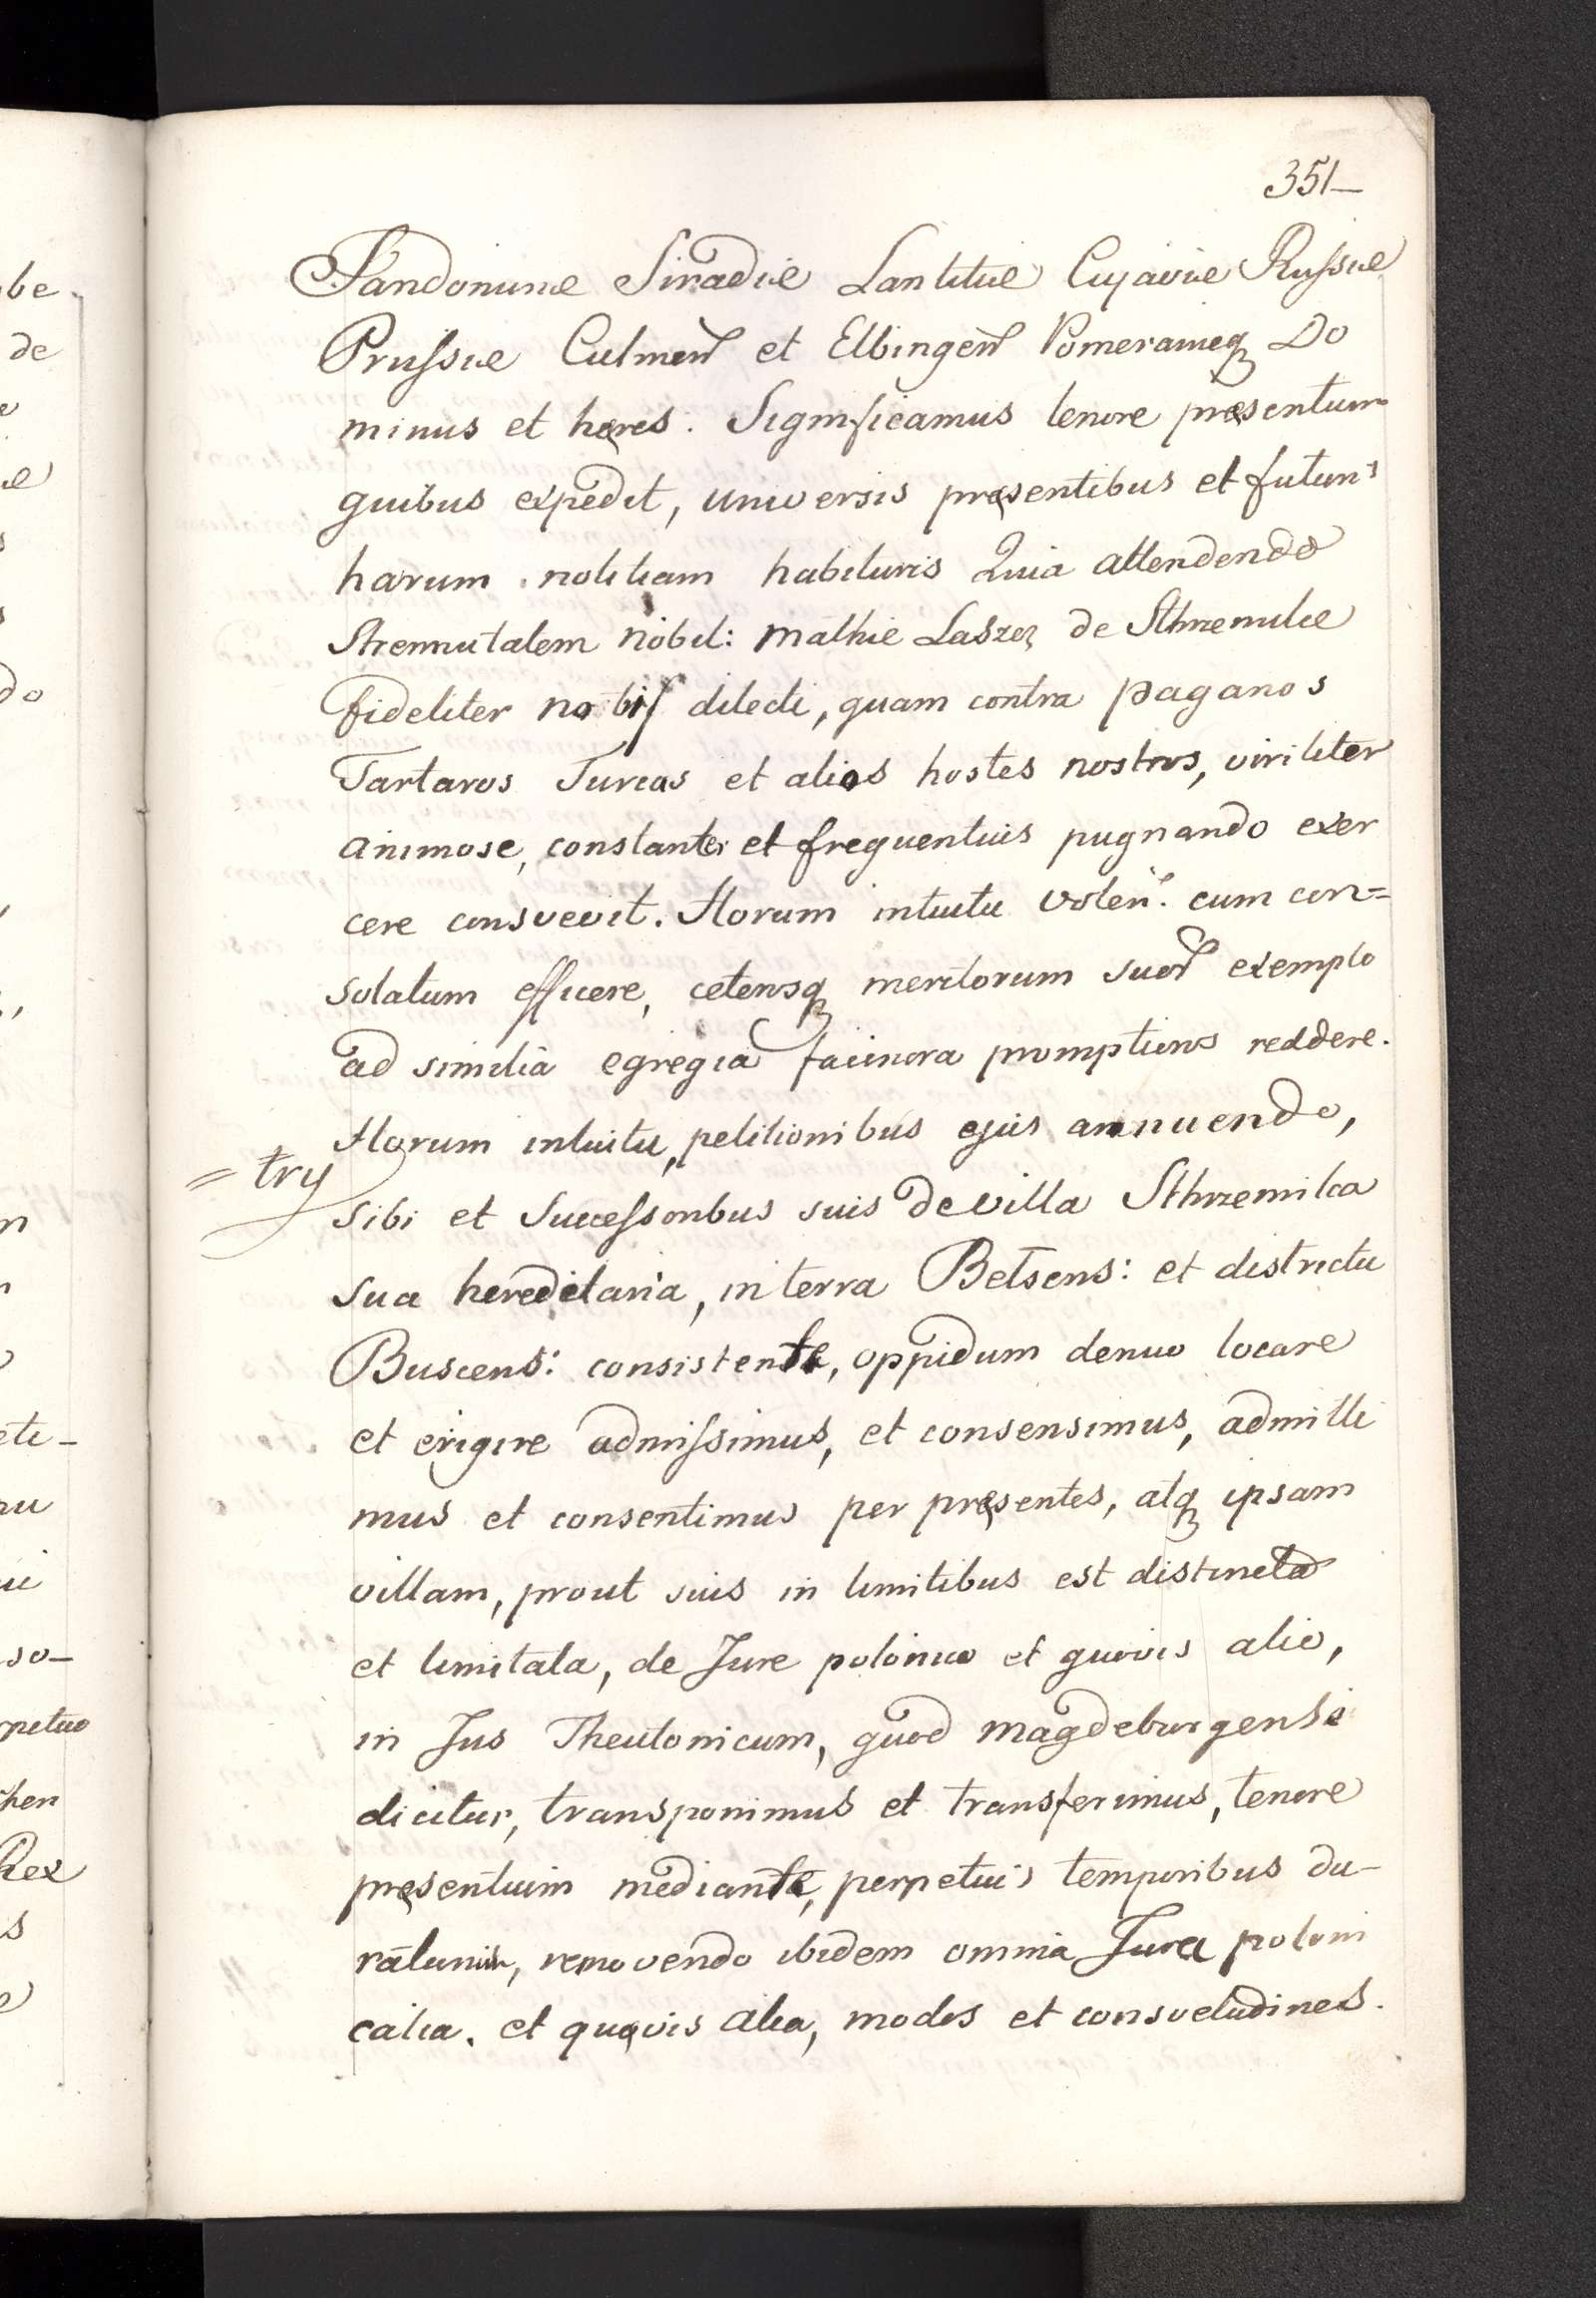 351–
Sandomirie Siradie Lantitie Cujavie Russie
Prussie Culmen̄ et Elbingen̄ Pomeranieq̨ Do
minus et hęres. Significamus tenore pręsentium
quibus expedit, universis pręsentibus et futuris
harum notitiam habituris Quia attendendo
Strennuitatem nobil: Mathie Laszcz de Sthrzemilcze
fideliter nobis dilecti, quam contra paganos
Tartaros Turcas et alios hostes nostros, viriliter
animose, constanter et frequentius pugnando exer
cere consvevit. Horum intuitu volen̄. eum con=
solatum efficere, ceterosq̨ meritorum suor̄ exemplo
ad similia egregia facinora promptiores reddere.
Horum intuitu, petitionibus ejus annuendo,
= try
sibi et Successoribus suis de villa Sthrzemilcza
sua hereditaria, in terra Belsens: et districtu
Buscens: consistente, oppidum denuo locare
et erigere admissimus, et consensimus, admitti
mus et consentimus per pręsentes, atq̨ ipsam
villam, prout suis in limitibus est distincta
et limitata, de Jure polonico et quovis alio,
in Jus Theutonicum, quod magdeburgense
dicitur, transponimus et transferimus, tenore
pręsentium mediante, perpetuis temporibus du-
raturum, removendo ibidem omnia Jura poloni
calia. et quęvis alia, modos et consvetudines.
be
de
do
eti-
so-
rpetuo
Rex